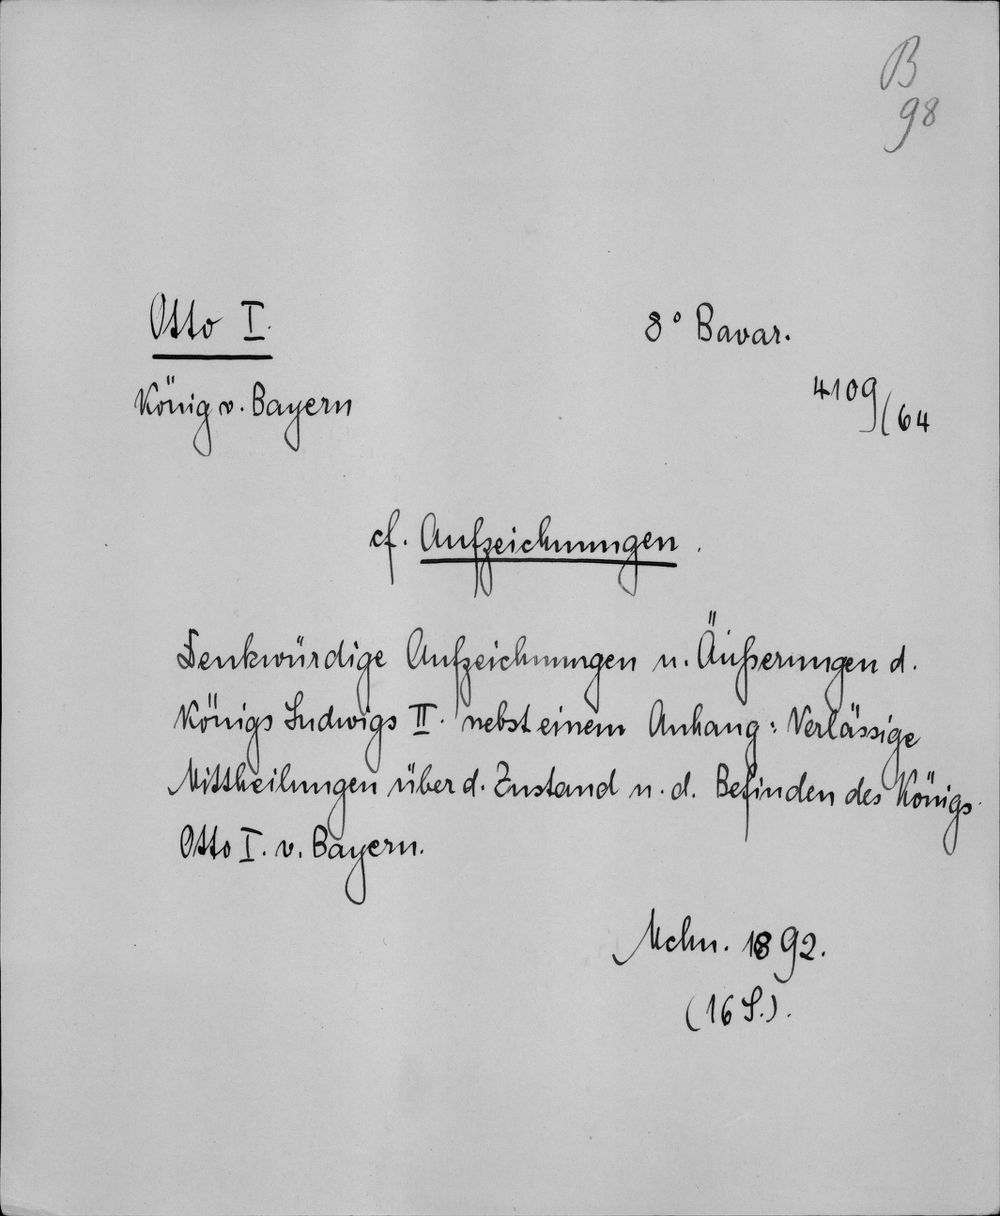 B
98
Otto I.
8° Bavar.
König v. Bayern
4109/64
cf. Aufzeichnungen.
Denkwürdige Aufzeichnungen u. Äußerungen d.
Königs Ludwigs II. nebst einem Anhang: Verlässige
Mittheilungen über d. Zustand u. d. Befinden des Königs
Otto I. v. Bayern.
Mchn. 1892.
(16 S.).